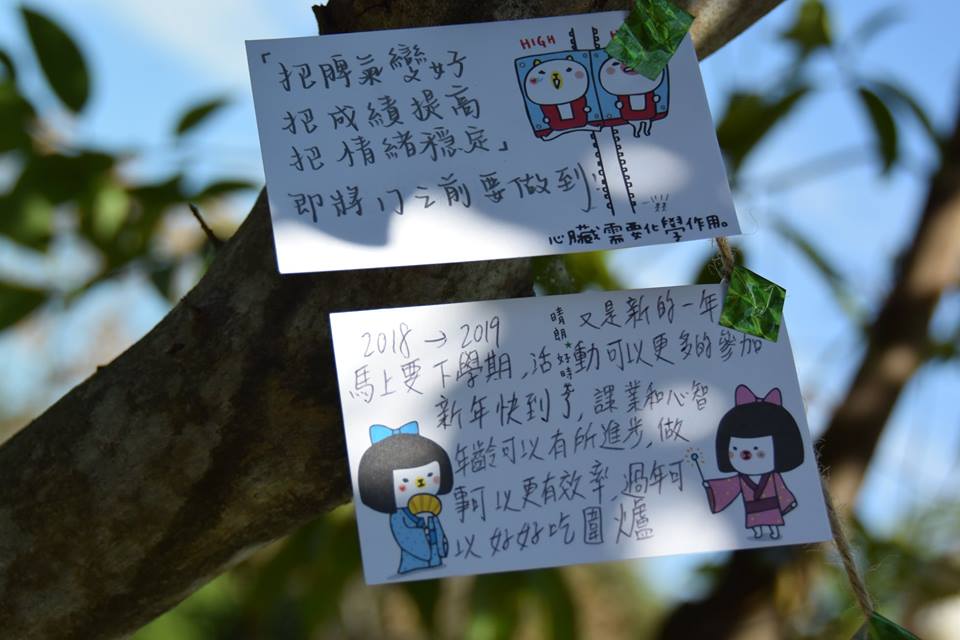 HIGH
「把脾氣變好
把成績提高
把情緒穩定」
即將17之前要做到
心臟需要化學作用。
2018→2019
晴朗*好時多
又是新的一年
馬上要下學期,活動可以更多的參加
新年快到了,課業和心智
年齡可以有所進步,做
事可以更有效率,過年可
以好好吃圍爐